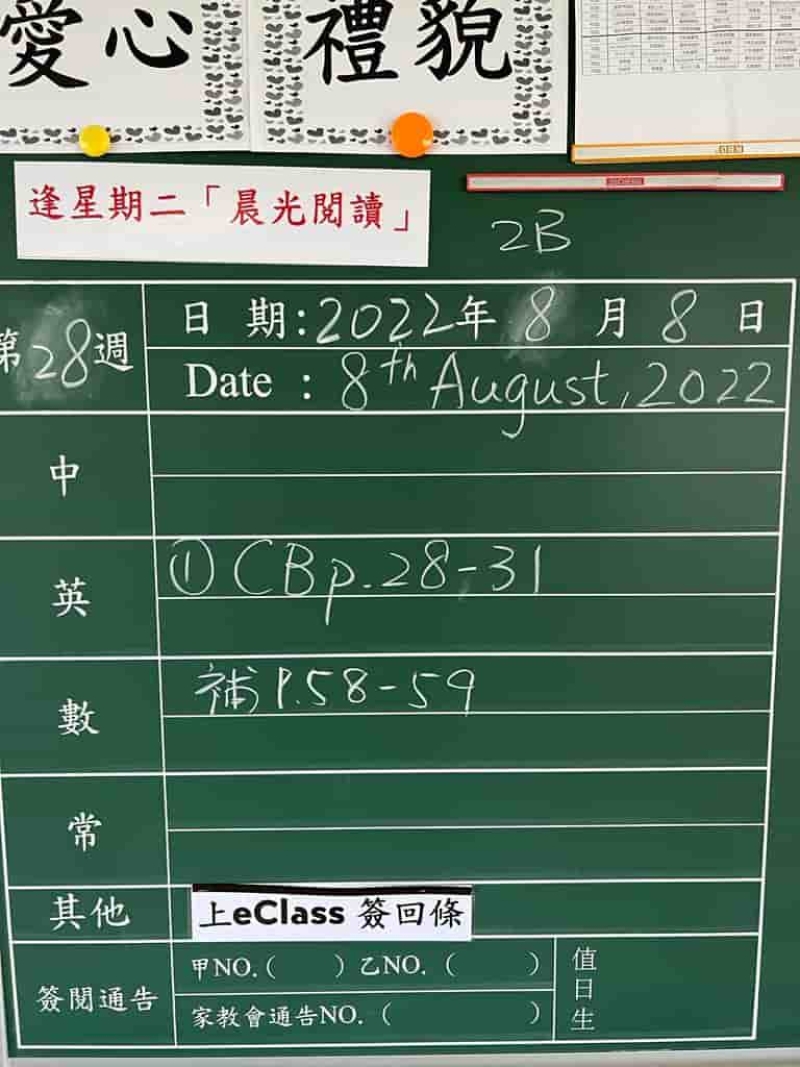 愛心
禮貌
逢星期二「晨光閱讀」
2B
第28週
日 期:2022年 8 月 8 日
Date : 8th August, 2022
中
英
① CB p.28-31
數
補 P.58-59
常
其他
上eClass 簽回條
簽閱通告
甲NO.( ) 乙NO. ( )
家教會通告NO. ( )
值日生